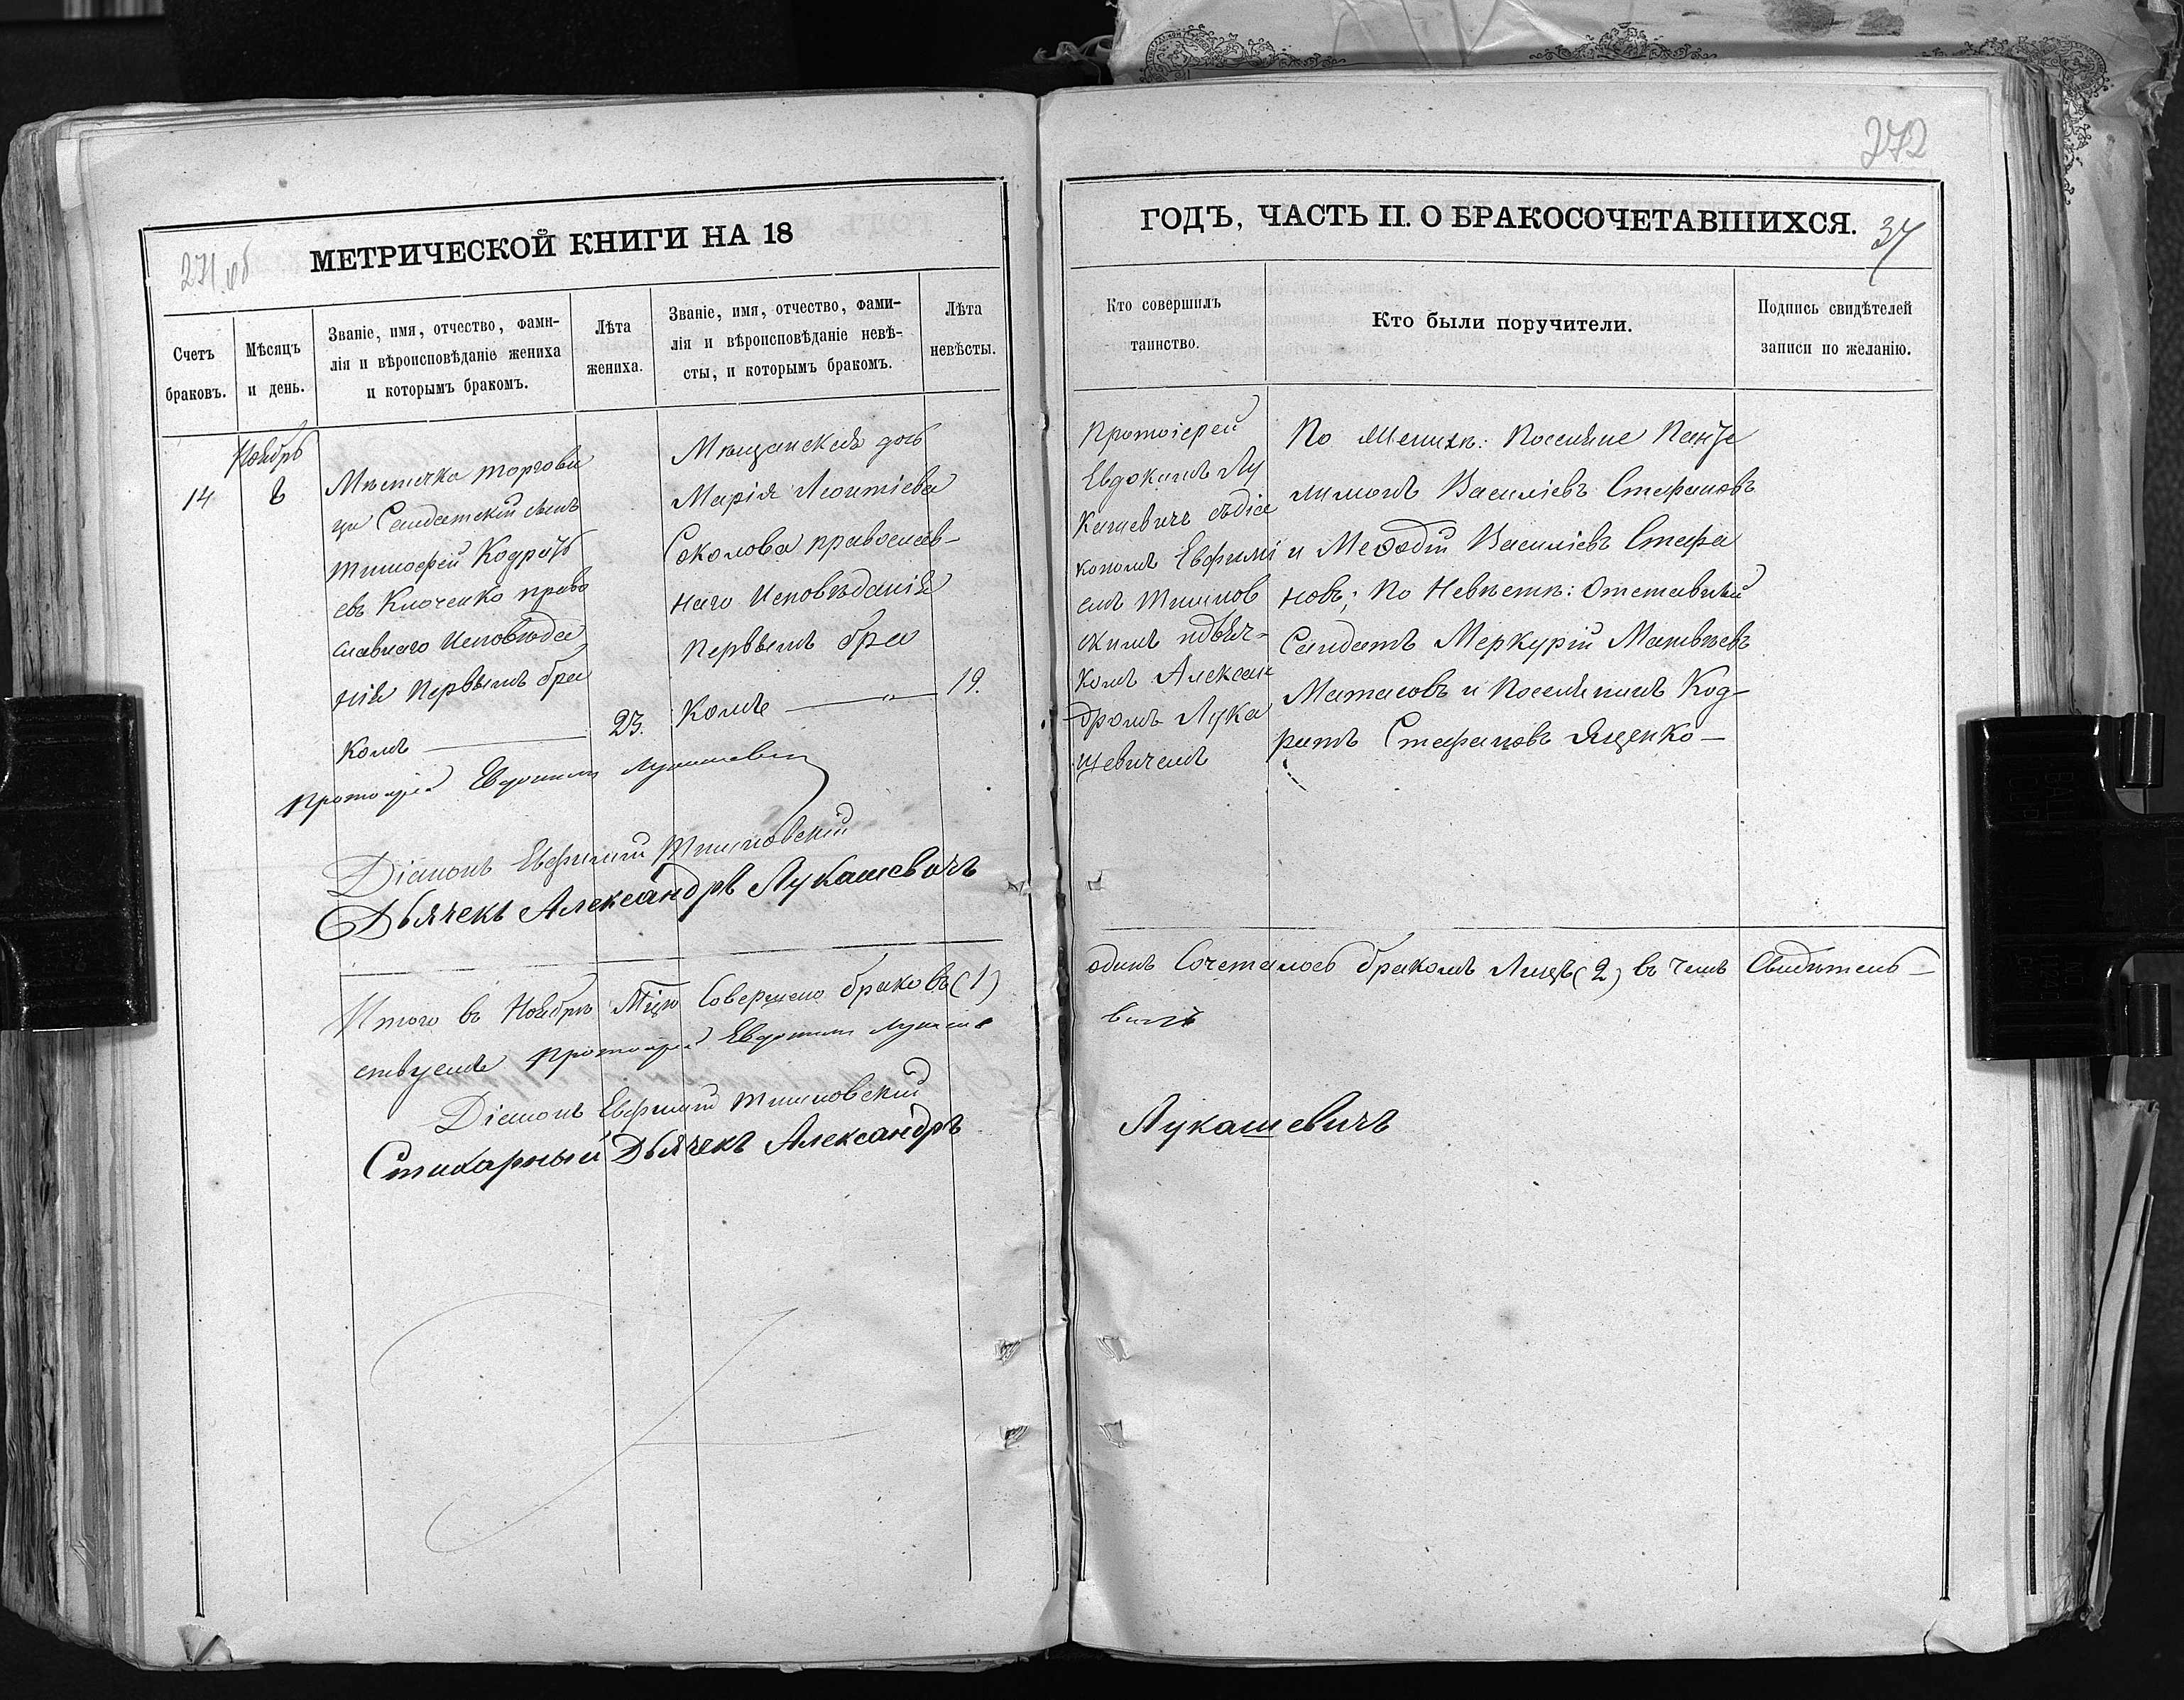 271 об
МЕТРИЧЕСКОЙ КНИГИ НА 18
Счетъ
браковъ.
Мѣсяцъ
и день.
Званіе, имя, отчество, фами-
лія и вѣроисповѣданіе жениха
и которымъ бракомъ.
Лѣта
жениха.
Званіе, имя, отчество, фами-
лія и вѣроисповѣданіе невѣ-
сты, и которымъ бракомъ.
Лѣта
невѣсты.
14
Ноябрь
8
Мѣстечка торгови
цы Солдатскій сынъ
Тимофей Кодрать
евъ Клоченко право
славнаго Исповѣда
нія Первымъ бра
комъ
23.
Мѣщанская дочь
Марія Леонтіева
Соколова православ-
наго Исповѣданія
Первымъ бра
комъ — „ —
19.
Протоіерей Евдокимъ Лукашевичъ
Діаконъ Евфимій Тышковскій
Дьячекъ Александръ Лукашевичъ
Итого въ Ноябрѣ Мцѣ Совершено браковъ (1)
ствуемъ Протоіерей Евдокимъ Лукаше
Діаконъ Евфимій Тышковскій
Стихарный Дьячекъ Александръ
272
ГОДЪ, ЧАСТЬ II. О БРАКОСОЧЕТАВШИХСЯ.
37
Кто совершилъ
таинство.
Кто были поручители.
Подпись свидѣтелей
записи по желанію.
Протоіерей
Евдокимъ Лу
кашевичъ съ діа
кономъ Евфимі
емъ Тышков
скимъ и дьяч-
комъ Алексан
дромъ Лука
шевичемъ
По Женихѣ: Поселяне Панте
лимонъ Василіевъ Стефановъ
и Меѳодій Василіевъ Стефа
новъ; По Невѣстѣ: Отставный
Солдатъ Меркурій Матвѣевъ
Матасовъ и Поселянинъ Код-
ратъ Стефановъ Яценко —
одинъ Сочеталось бракомъ Лицъ (2) въ чемъ Свидѣтель-
вичъ
Лукашевичъ